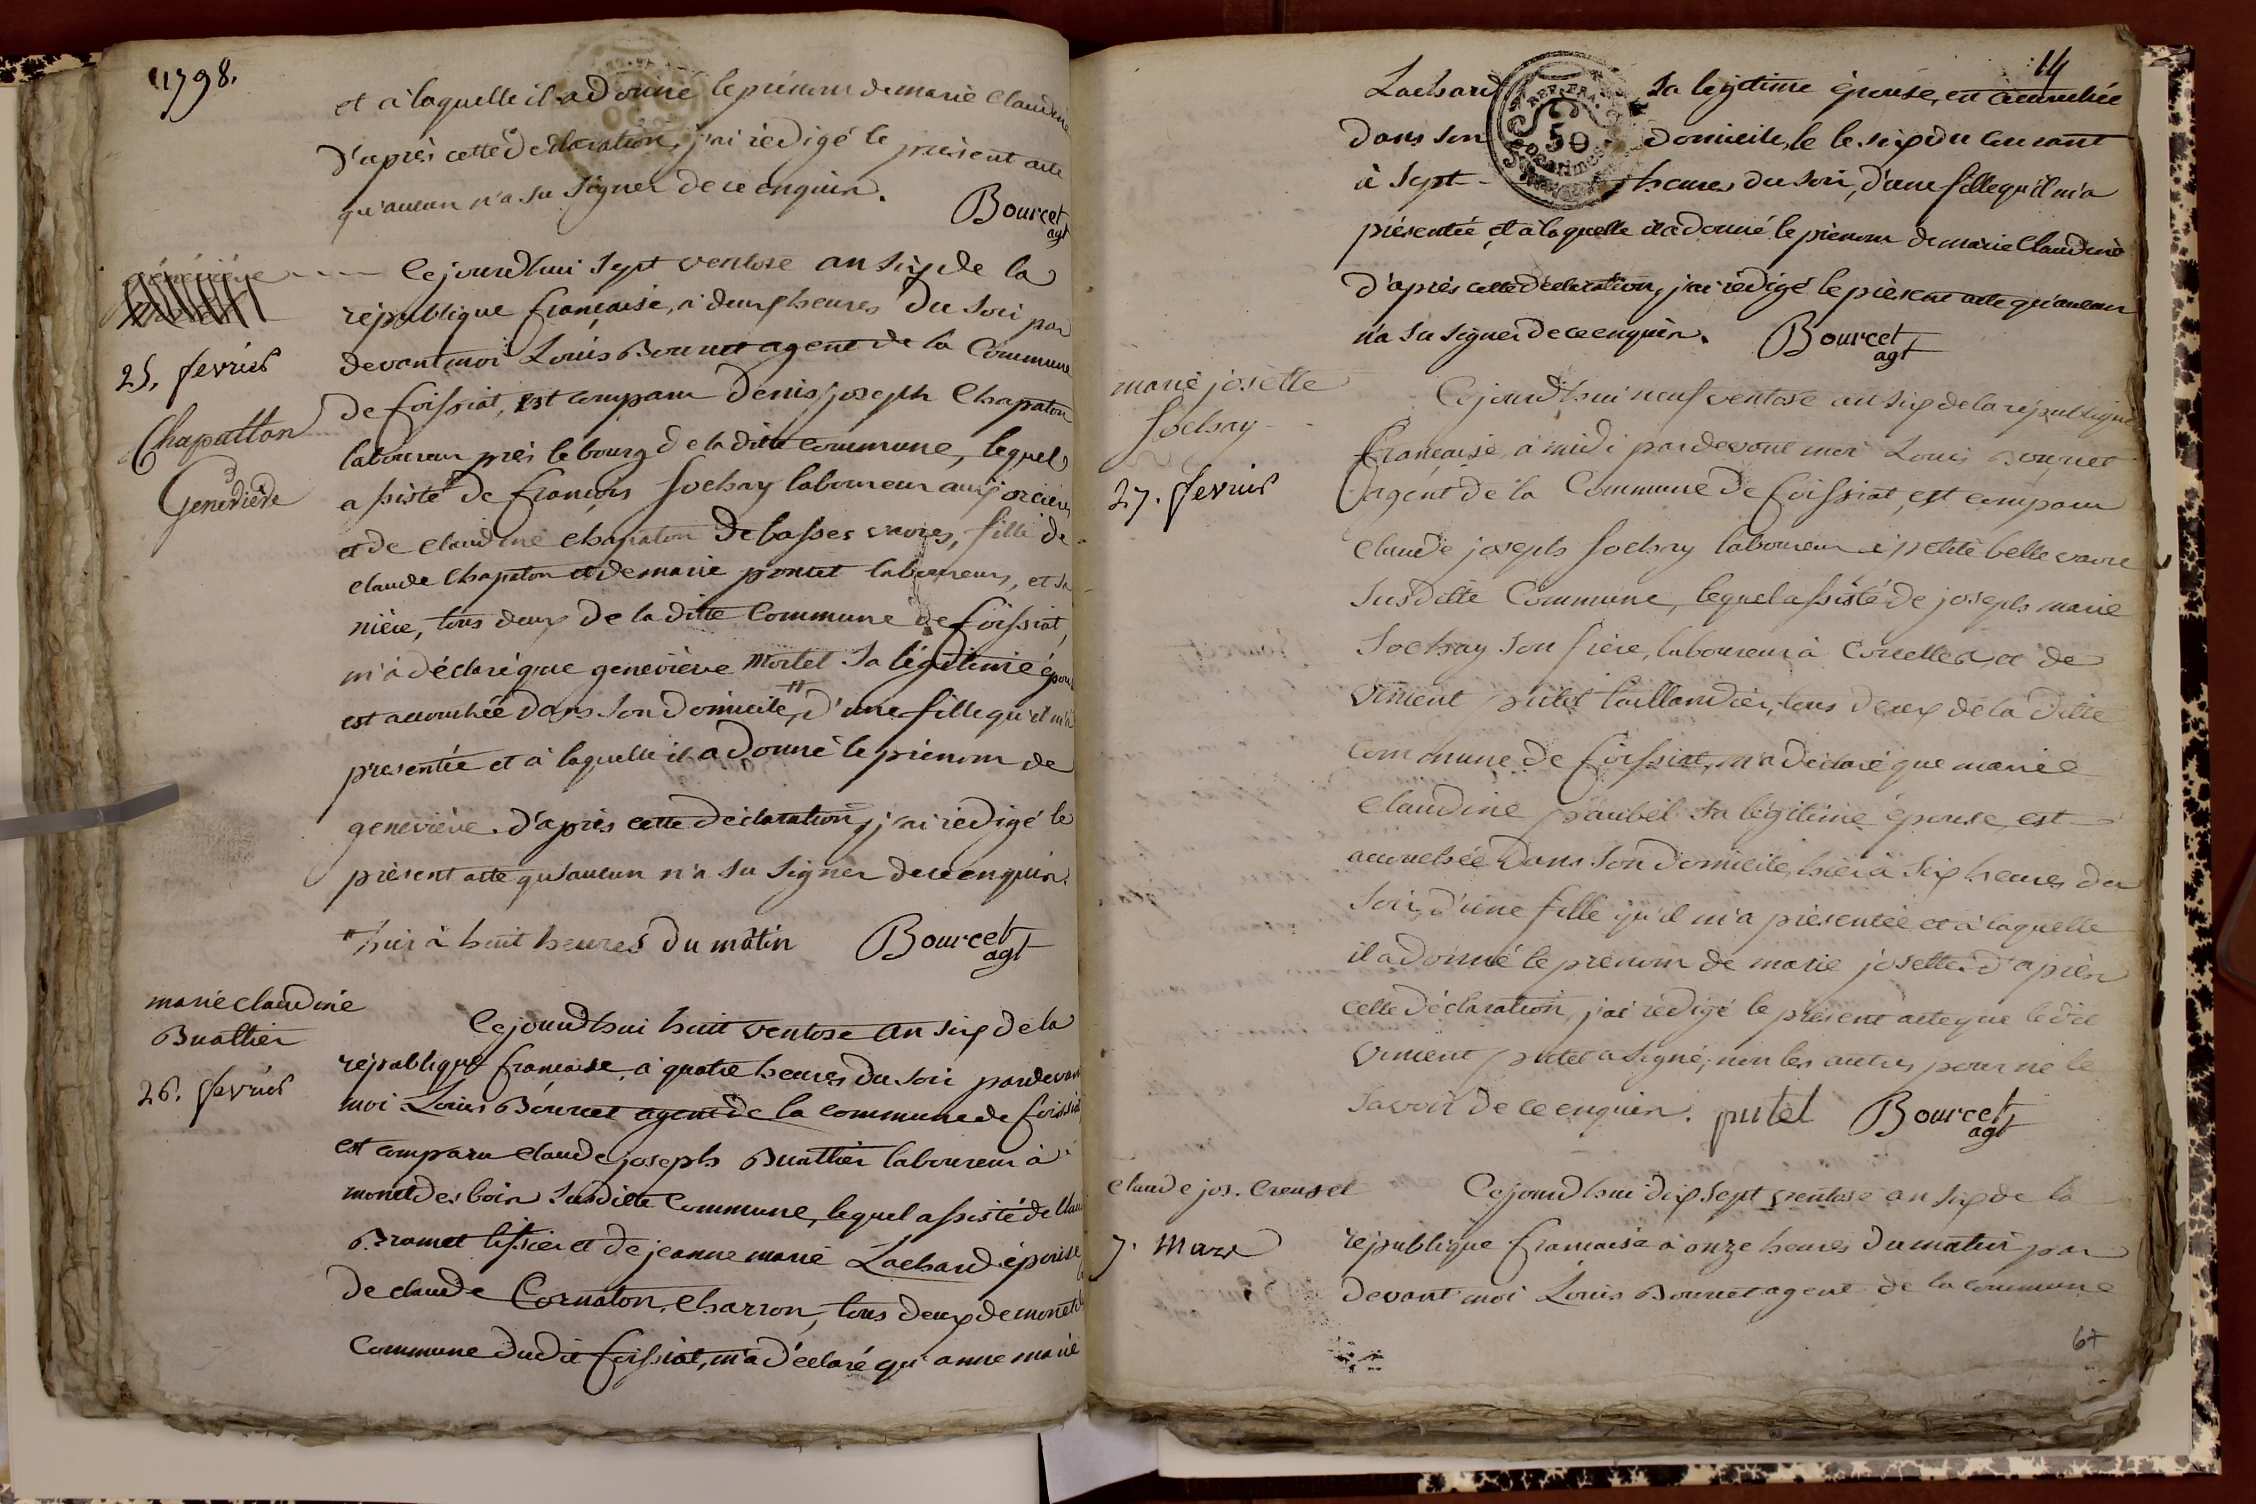 1798.
et à laquelle il a donné le prénom de marie Claudine
D'après cette Déclaration, j'ai rédigé le présent acte
qu'aucun n'a su signer de ce enquis.
Bourcet
agt
généviève
Cejourdhui sept ventose an six de la
république française, à deux heures du soir par
25. fevrier
devant moi Louis Bourcet agent de la Commune
de foissiat, est comparu Denis joseph Chapaton
Chapatton
Geneviève
laboureur près le bourg de la ditte commune, lequel
assisté de françois sochay laboureur aux orcières
et de claudine chapaton de basses vavres, fille de
claude Chapaton et de marie poncet laboureurs, et sa
nièce, tous deux de la ditte Commune de foissiat,
m'a déclaré que geneviève Mortel sa légitime épouse
est accouchée dans son domicile, # d'une fille qu'il m'a
présentée et à laquelle il a donné le prénom de
geneviève. d'après cette déclaration, j'ai rédigé le
présent acte qu'aucun n'a su signer de ce enquis.
# hier à huit heures du matin
Bourcet
agt
marie claudine
Buattier
Cejourdhui huit ventose an six de la
république française, à quatre heures du soir pardevant
26. fevrier
moi Louis Bourcet agent de la commune de foissiat
est comparu claude joseph Buattier laboureur à
monet des bois susditte Commune, lequel assisté de Claude
Bramet tissier et de jeanne marie Lachard épouse
de claude Cornaton, charron, tous deux de monet
Commune dudit foissiat, m'a déclaré qu'anne marie
14
Lachard sa légitime épouse, est accouchée
REP. FRA.
50
dans son domicile, le le six du courant
à sept heures du soir, d'une fille qu'il m'a
présentée, et à laquelle il a donné le prénom de marie Claudine
d'après cette déclaration, j'ai rédigé le présent acte qu'aucun
n'a su signer de ce enquis.
Bourcet
agt
marie josette
Sochay
Cejourdhui neuf ventose an six de la république
française, à midi pardevant moi Louis Bourcet
27. fevrier
agent de la Commune de foissiat, est comparu
Claude joseph sochay laboureur à petite belle vavre
susditte Commune, lequel assisté de joseph marie
Sochay son frère, laboureur à Corcelles et de
vincent putet taillandier, tous deux de la ditte
commune de foissiat, m'a déclaré que marie
Claudine paubel sa légitime épouse, est
accouchée dans son domicile, hier à six heures du
soir, d'une fille qu'il m'a présentée et à laquelle
il a donné le prénom de marie josette. d'après
cette déclaration, j'ai rédigé le présent acte que ledit
vincent putet a signé, non les autres pour ne le
savoir de ce enquis.
putet
Bourcet
agt
claude jos. Creuset
Cejourdhui dix sept ventose an six de la
7. Mars
république française à onze heures du matin par
devant moi Louis Bourcet agent de la commune
67